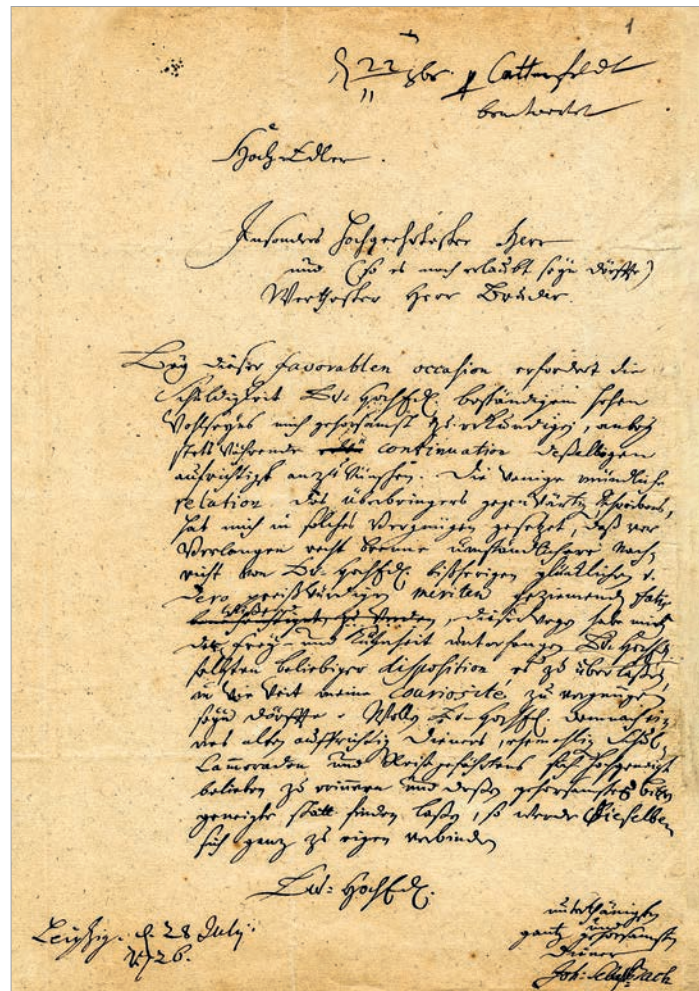 1
22
11 8br. p Cattenfeldt
beantwortet
HochEdler.
Insonders Hochgeehrtester Herr
und (so es noch erlaubt seyn dörffte)
Werthester Herr Bruder.
Bey dieser favorablen occasion erfordert die
Schuldigkeit Ew: HochEdl. beständigen hohen
Wohlseyns mich gehorsamst zu erkundigen, anbey
stets währende continuation deßelbigen
aufrichtigst anzuwünschen. Die wenige mündliche
relation des überbringers gegenwärtigen Schreibens,
hat mich in solches Vergnügen gesetzet, daß vor
Verlangen recht brenne umständlichere Nach
richt von Ew: HochEdl. bißherigen glücklichen u.
Dero preißwürdigen meriten geziemend fatis
zu werden, dieserwegen habe mich
der Frey- und Kühnheit unterfangen Ew: HochEdl.
selbsten beliebiger disposition es zu überlaßen,
in wie weit meine couriosité zu vergnügen
seyn dörffte. Wollen Ew: HochEdl. demnach
des alten auffrichtigen Dieners, ehemahligen Schul-
Cammeraden und Reisegefährtens sich hochgeneigt
belieben zu erinnern und deßen gehorsamstes bitten
geneigte statt finden laßen, so werden Dieselben
sich gantz zu eigen verbinden
Ew: HochEdl.
Leipzig. d. 28 July.
1726.
unterthänigsten
und
gantz gehorsamsten
Diener
Joh: Seb: Bach